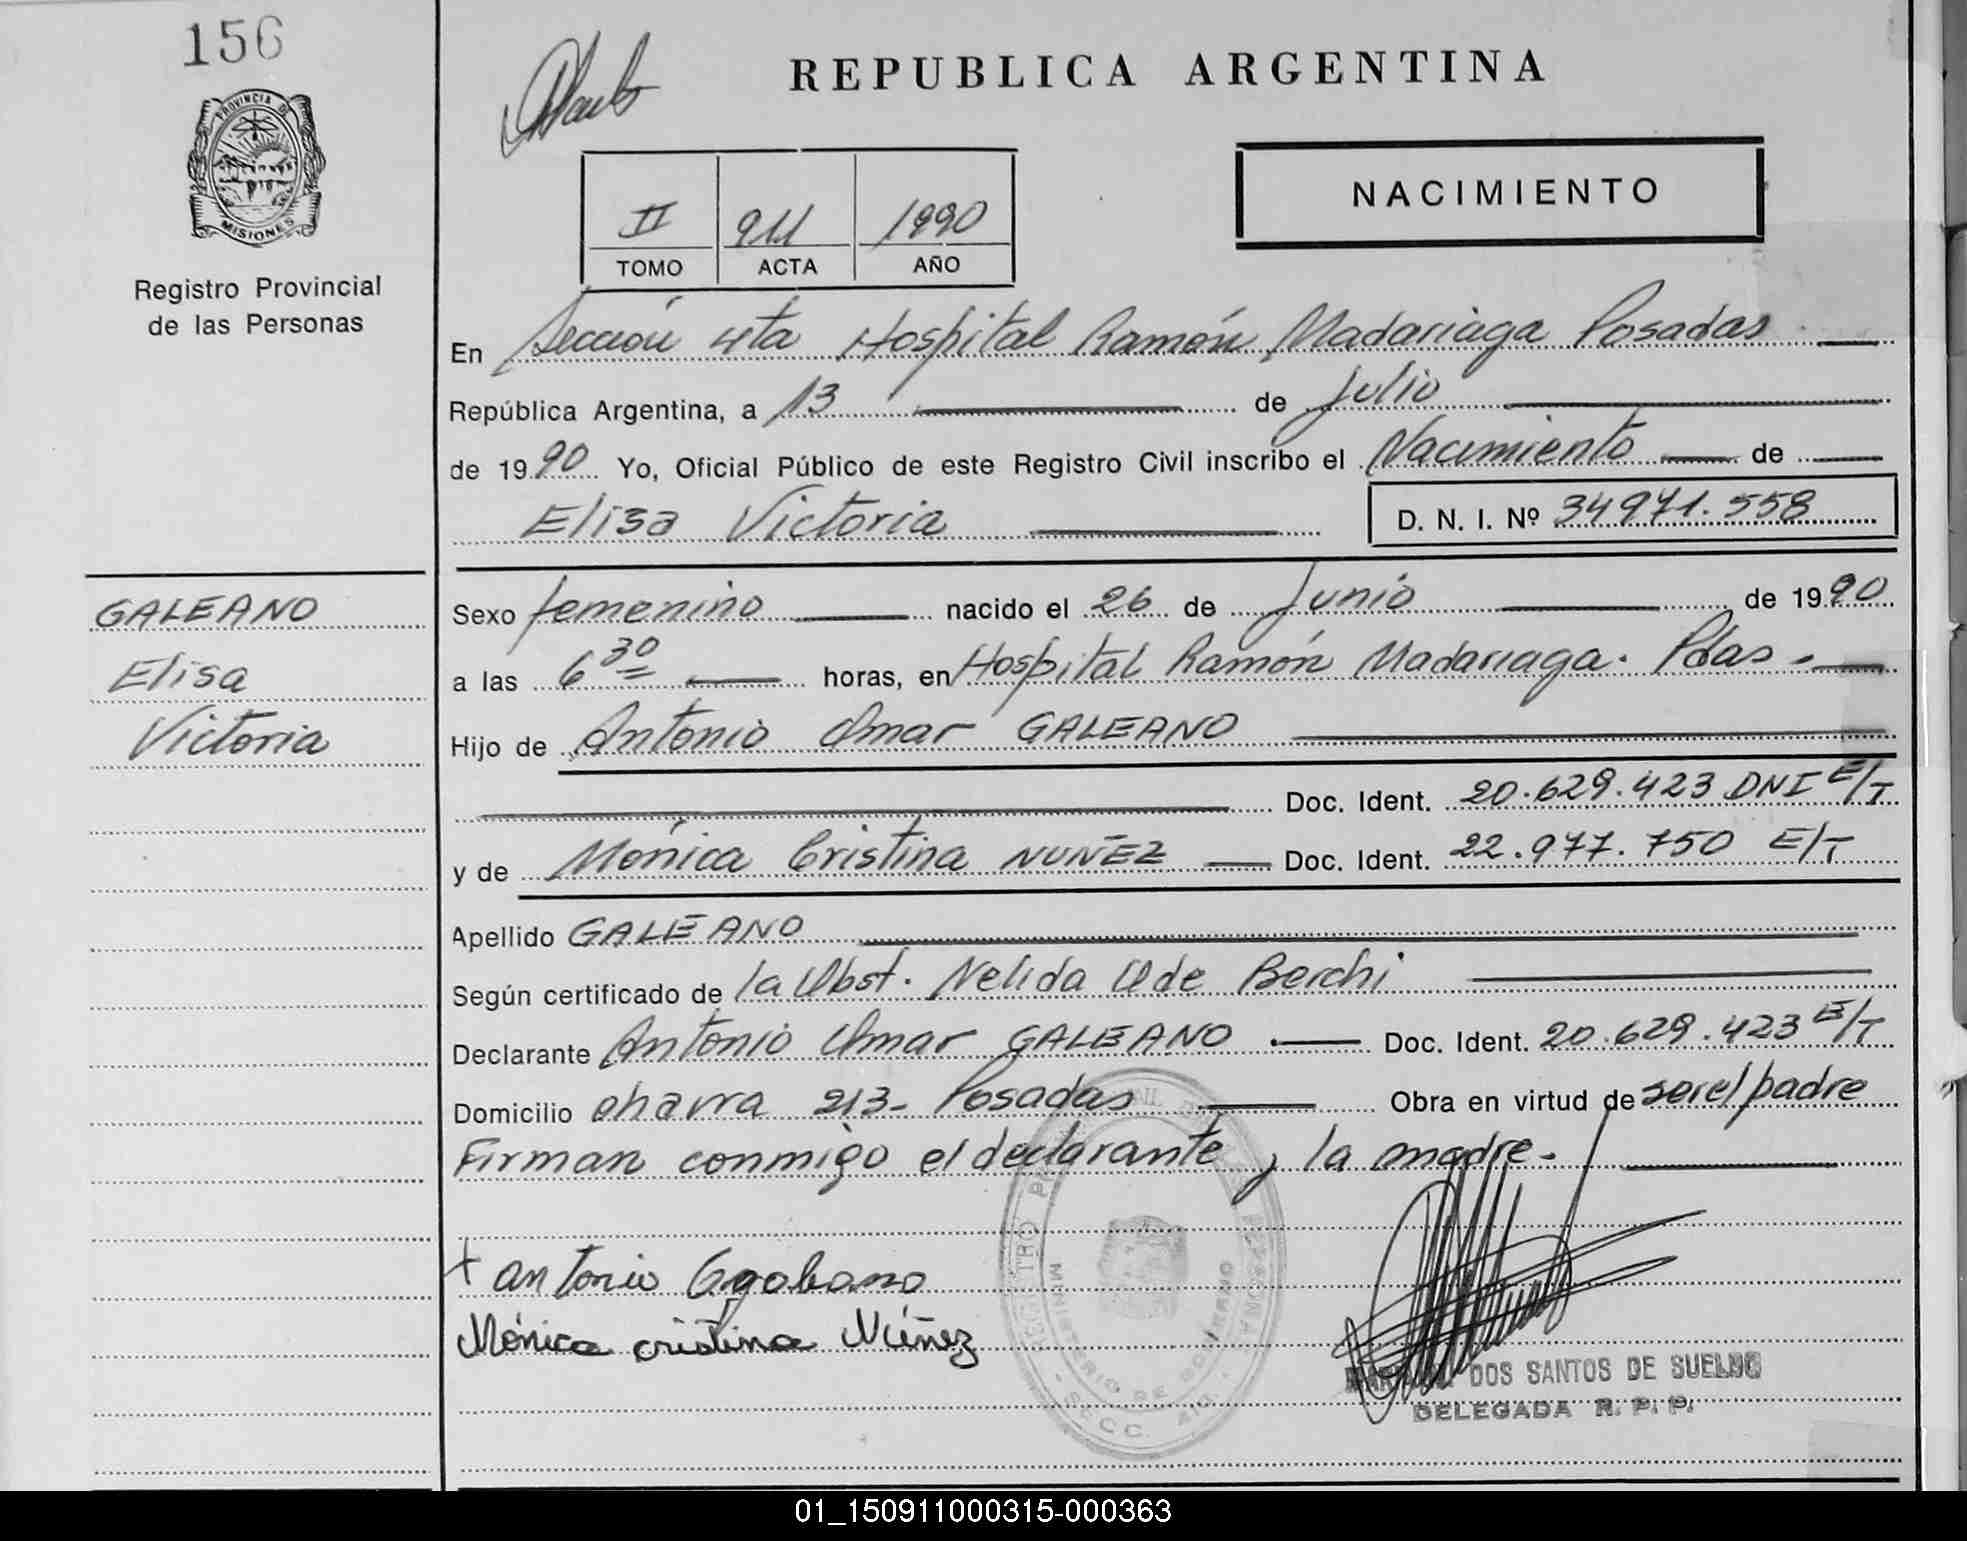 156
PROVINCIA DE
MISIONES
Registro Provincial
de las Personas
REPUBLICA ARGENTINA
NACIMIENTO
II 911 1990
TOMO ACTA AÑO
En Sección 4ta Hospital Ramón Madariaga Posadas
República Argentina, a 13 de Julio
de 1990 Yo, Oficial Público de este Registro Civil inscribo el Nacimiento de
Elisa Victoria D. N. I. Nº 34971.558
GALEANO
Elisa
Victoria
Sexo femenino nacido el 26 de Junio de 1990
a las 6 30 horas, en Hospital Ramón Madariaga. Pdas -
Hijo de Antonio Omar GALEANO
Doc. Ident. 20.629.423 DNI E/T
y de Mónica Cristina NUÑEZ Doc. Ident. 22.977.750 E/T
Apellido GALEANO
Según certificado de la Obst. Nelida U de Berchi
Declarante Antonio Omar GALEANO Doc. Ident. 20.629.423 E/T
Domicilio 213- Posadas Obra en virtud de ser el padre
Firman conmigo el declarante y la madre.-
+ antonio
Mónica cristina Núñez
REGISTRO PERSONAS
MINISTERIO DE GOBIERNO
DOS SANTOS DE
DELEGADA R. P. P.
01_150911000315-000363